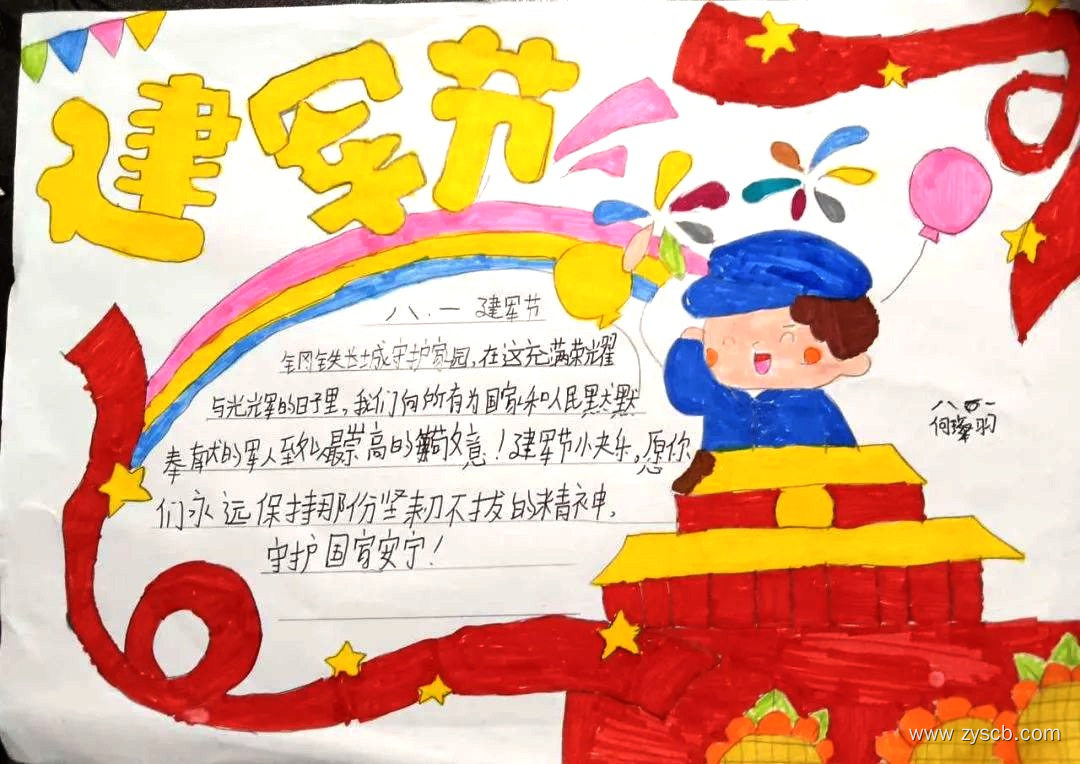 建军节
八.一 建军节
钢铁长城守护家园,在这充满荣耀
与光辉的日子里,我们向所有为国家和人民默默
奉献的军人至以最崇高的敬意!建军节快乐,愿你
们永远保持那份坚韧不拔的精神,
守护国家安宁!
何璨羽
www.zyscb.com